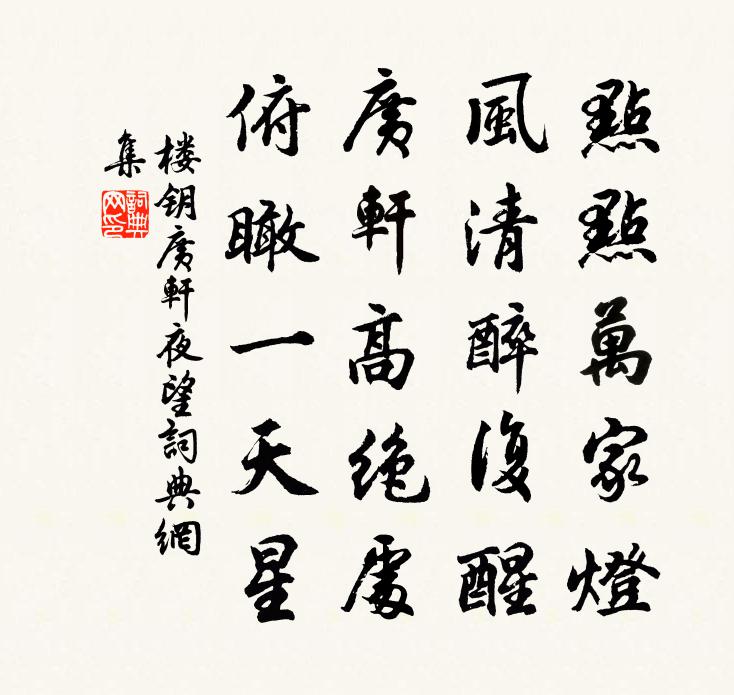 點點萬家燈
風清醉復醒
廣軒高絕處
俯瞰一天星
楼钥廣軒夜望詞典網
集
詞典
网印